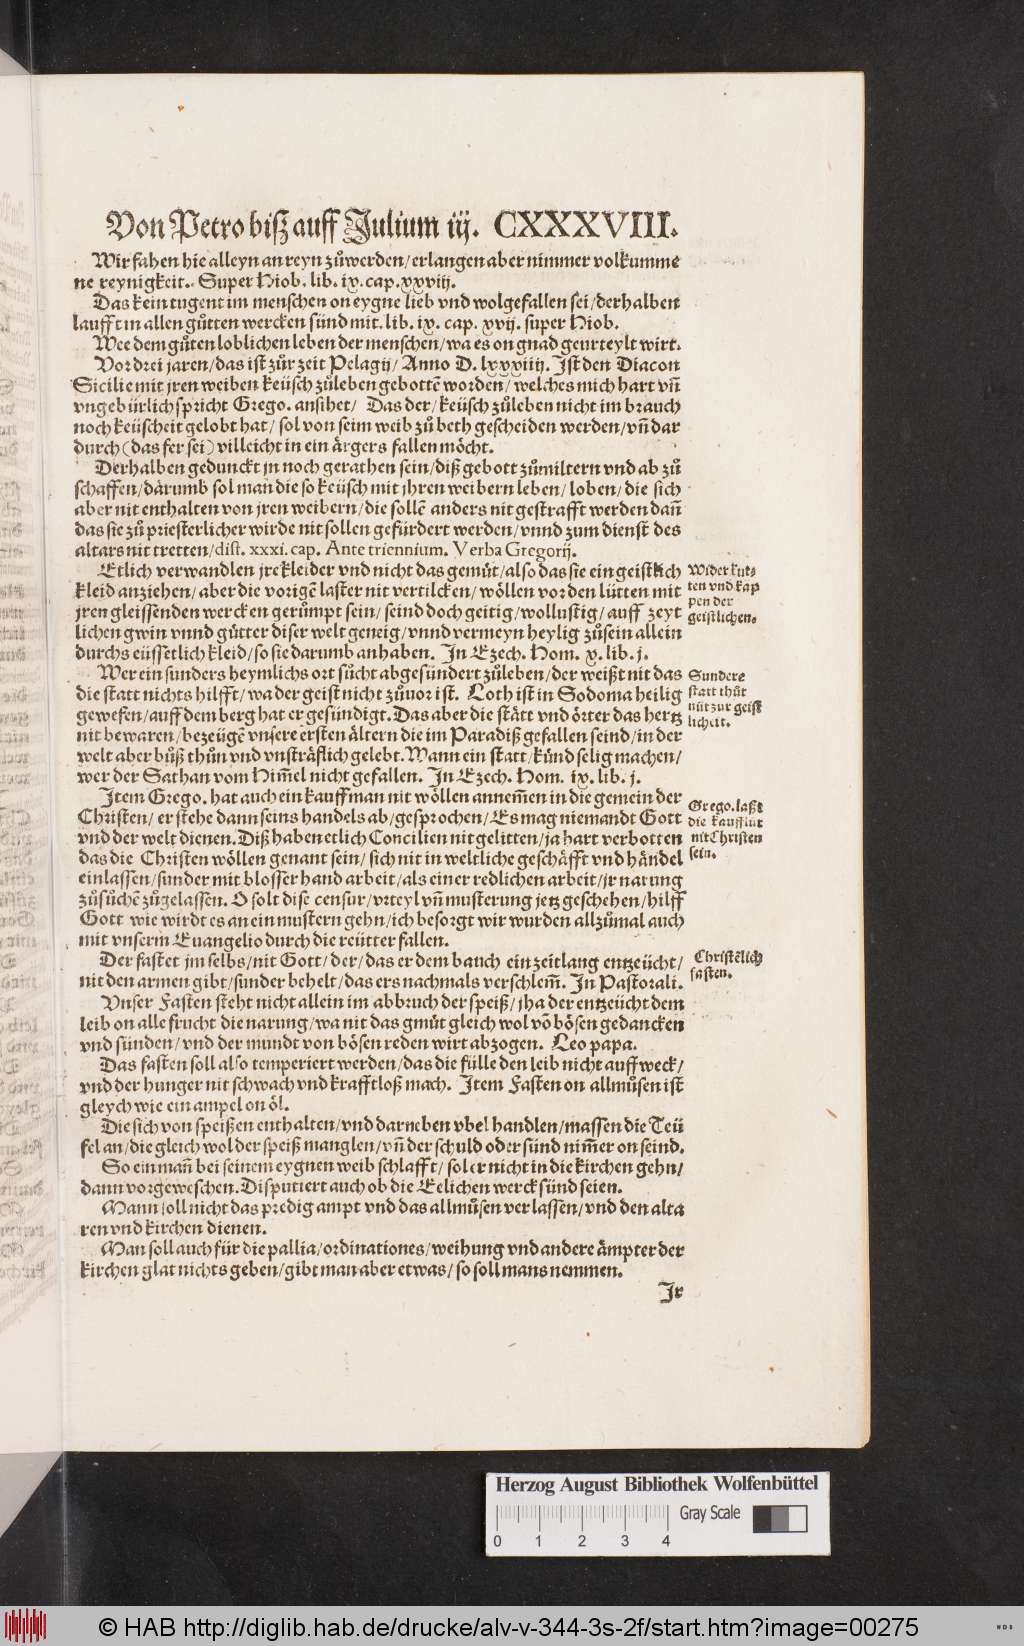 Von Petro biß auff Julium iij. CXXXVIII.
Wir fahen hie alleyn an reyn zůwerden/ erlangen aber nimmer volkumme
ne reynigkeit. Super Hiob. lib. ix. cap. xxviij.
Das kein tugent im menschen on eygne lieb vnd wolgefallen sei/ derhalben
laufft in allen gůtten wercken sünd mit. lib. ix. cap. xvij. super Hiob.
Wee dem gůten loblichen leben der menschen/ wa es on gnad geurteylt wirt.
Vor drei jaren/ das ist zůr zeit Pelagij/ Anno D. lxxxiiij. Ist den Diacon
Sicilie mit jren weiben keüsch zůleben gebottē worden/ welches mich hart vñ
vngebürlich spricht Grego. ansihet/ Das der/ keüsch zůleben nicht im brauch
noch keüscheit gelobt hat/ sol von seim weib zů beth gescheiden werden/ vñ dar
durch (das fer sei) villeicht in ein ärgers fallen möcht.
Derhalben gedunckt jn noch gerathen sein/ diß gebott zůmiltern vnd ab zů
schaffen/ darumb sol man die so keüsch mit jhren weibern leben/ loben/ die sich
aber nit enthalten von jren weibern/ die sollē anders nit gestrafft werden dañ
das sie zů priesterlicher wirde nit sollen gefürdert werden/ vnnd zum dienst des
altars nit tretten/ dist. xxxi. cap. Ante triennium. Verba Gregorij.
Etlich verwandlen jre kleider vnd nicht das gemüt/ also das sie ein geistlich
kleid anziehen/ aber die vorigē laster nit vertilcken/ wöllen vor den lütten mit
jren gleissenden wercken gerůmpt sein/ seind doch geitig/ wollustig/ auff zeyt
lichen gwin vnnd gůtter diser welt geneig/ vnnd vermeyn heylig zůsein allein
durchs eüssetlich kleid/ so sie darumb anhaben. In Ezech. Hom. x. lib. j.
Wer ein sunders heymlichs ort sůcht abgesündert zůleben/ der weißt nit das
die statt nichts hilfft/ wa der geist nicht zůuor ist. Loth ist in Sodoma heilig
gewesen/ auff dem berg hat er gesündigt. Das aber die stätt vnd örter das hertz
nit bewaren/ bezeügē vnsere ersten ältern die im Paradiß gefallen seind/ in der
welt aber bůß thůn vnd vnsträflich gelebt. Wann ein statt/ künd selig machen/
wer der Sathan vom Him̄el nicht gefallen. In Ezech. Hom. ix. lib. j.
Item Grego. hat auch ein kauffman nit wöllen annem̄en in die gemein der
Christen/ er stehe dann seins handels ab/ gesprochen/ Es mag niemandt Gott
vnd der welt dienen. Diß haben etlich Concilien nit gelitten/ ja hart verbotten
das die Christen wöllen genant sein/ sich nit in weltliche geschäfft vnd händel
einlassen/ sunder mit blosser hand arbeit/ als einer redlichen arbeit/ jr narung
zůsůchē zůgelassen. O solt dise censur/ vrteyl vñ musterung jetz geschehen/ hilff
Gott wie wirdt es an ein mustern gehn/ ich besorgt wir wurden allzůmal auch
mit vnserm Euangelio durch die reütter fallen.
Der fastet jm selbs/ nit Gott/ der/ das er dem bauch ein zeitlang entzeücht/
nit den armen gibt/ sunder behelt/ das ers nachmals verschlem̄. In Pastorali.
Vnser Fasten steht nicht allein im abbruch der speiß/ jha der entzeücht dem
leib on alle frucht die narung/ wa nit das gmüt gleich wol vō bösen gedancken
vnd sünden/ vnd der mundt von bösen reden wirt abzogen. Leo papa.
Das fasten soll also temperiert werden/ das die fülle den leib nicht auffweck/
vnd der hunger nit schwach vnd krafftloß mach. Item Fasten on allmůsen ist
gleych wie ein ampel on öl.
Die sich von speißen enthalten/ vnd darneben vbel handlen/ massen die Teü
fel an/ die gleich wol der speiß manglen/ vñ der schuld oder sünd nim̄er on seind.
So ein mañ bei seinem eygnen weib schlafft/ sol er nicht in die kirchen gehn/
dann vorgeweschen. Disputiert auch ob die Eelichen werck sünd seien.
Mann soll nicht das predig ampt vnd das allmůsen verlassen/ vnd den alta
ren vnd kirchen dienen.
Man soll auch für die pallia/ ordinationes/ weihung vnd andere ämpter der
kirchen glat nichts geben/ gibt man aber etwas/ so soll mans nemmen.
Ir
Wider kut-
ten vnd kap
pen der
geistlichen.
Sundere
statt thůt
nüt zur geist
licheit.
Grego. laßt
die kaufflüt
nit Christen
sein.
Christēlich
fasten.
Herzog August Bibliothek Wolfenbüttel
Gray Scale
0 1 2 3 4
© HAB http://diglib.hab.de/drucke/alv-v-344-3s-2f/start.htm?image=00275